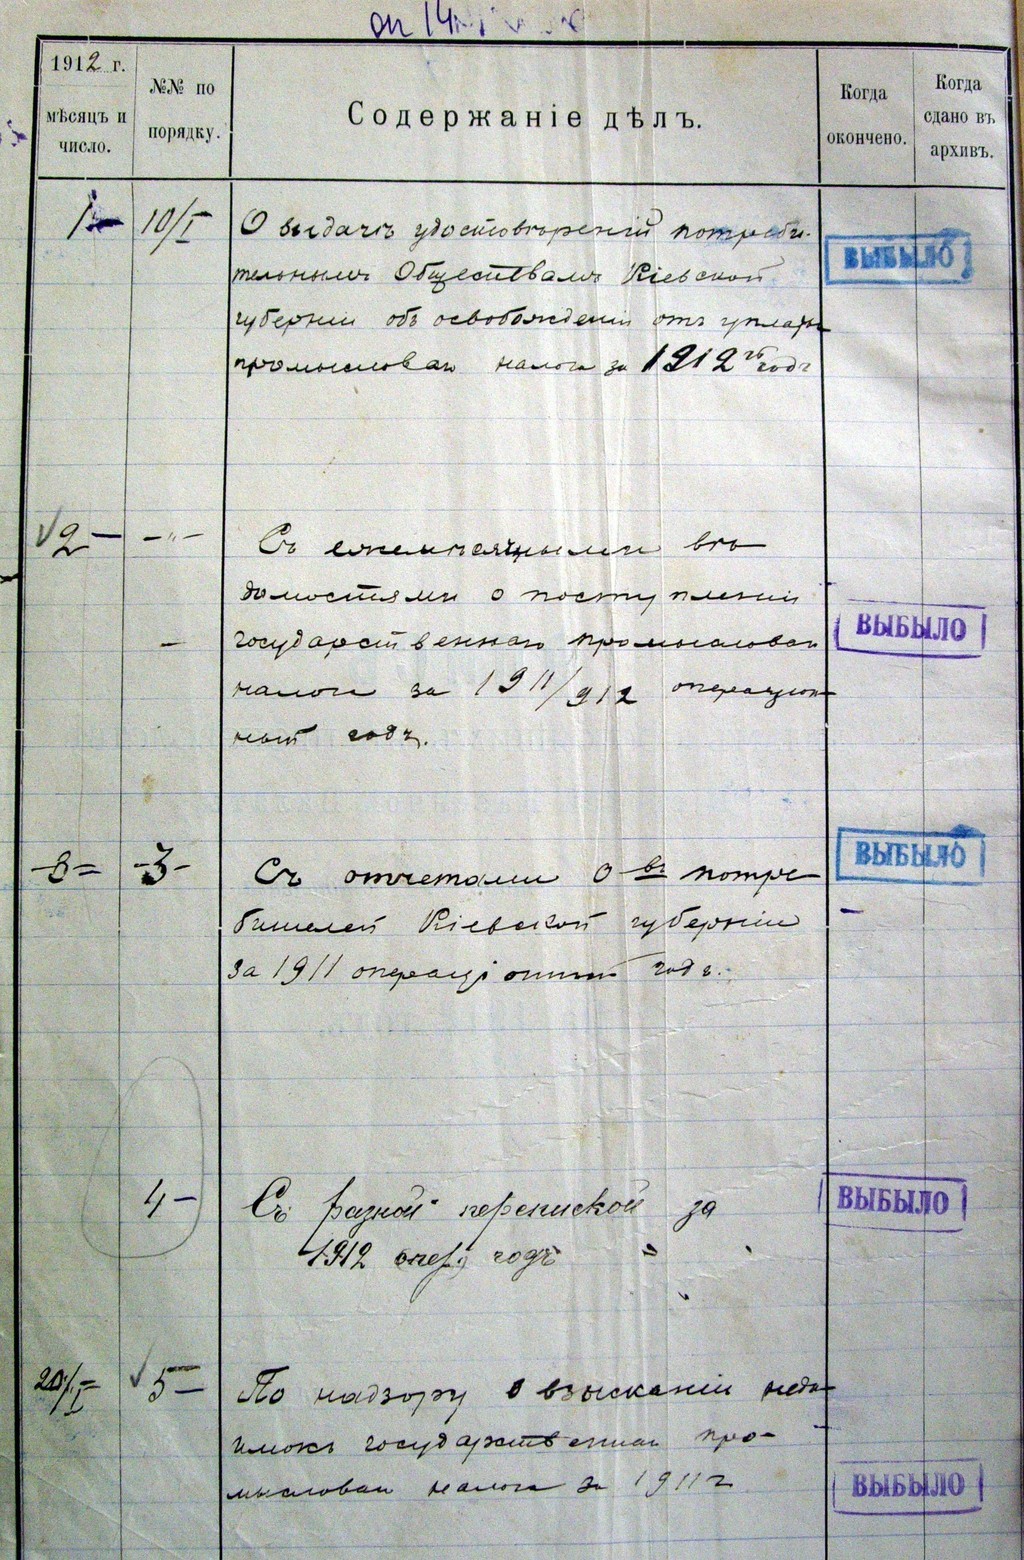 оп 14
1912 г.
мѣсяцъ и
число.
№№ по
порядку.
Содержаніе дѣлъ.
Когда
окончено.
Когда
сдано въ
архивъ.
1 10/I О выдачѣ удостовѣреній потреби-
тельнымъ Обществамъ Кіевской ВЫБЫЛО
губерніи объ освобожденіи отъ уплаты
промысловаго налога за 1912 годъ
2 — „ — Съ ежемѣсячными вѣ-
домостями о поступленіи
государственнаго промысловаго ВЫБЫЛО
налога за 1911/912 операціон-
ный годъ.
3 Съ отчетами О въ потре- ВЫБЫЛО
бителей Кіевской губерніи
за 1911 операціонный годъ.
4 — Съ разной перепиской за ВЫБЫЛО
1912 опер. годъ
20/I 5 — По надзору о взысканіи недо-
имокъ государственнаго про-
мысловаго налога за 1911 г ВЫБЫЛО